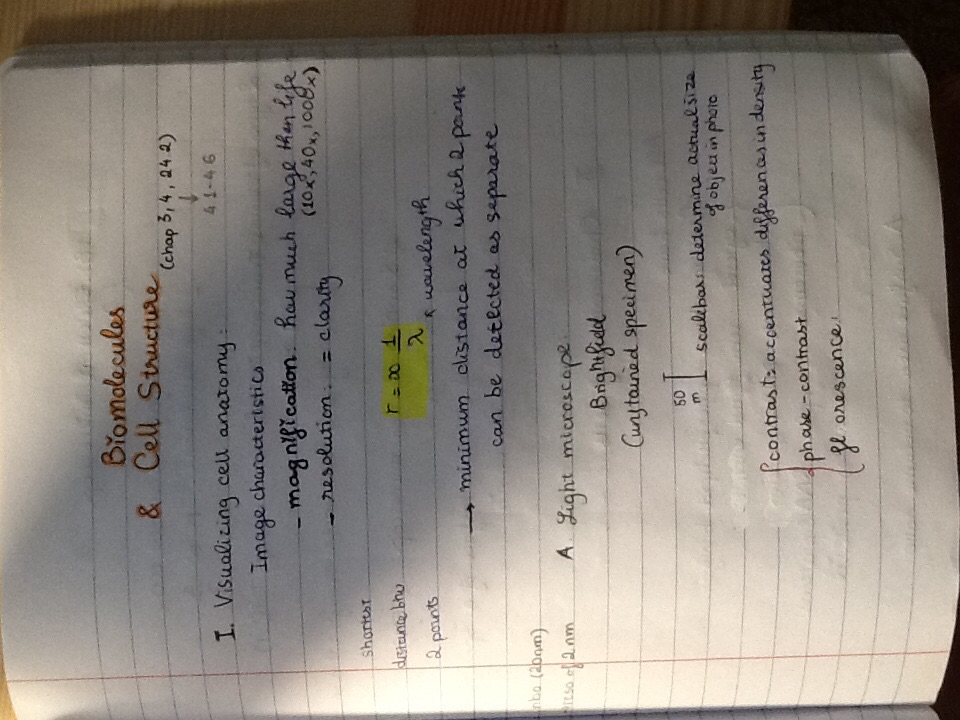 Biomolecules
& Cell Structure
(chap 3, 4, 24 2)
4.1-4.6
I. Visualizing cell anatomy:
Image characteristics
- magnification: how much large then life
(10x, 40x, 1000x)
- resolution: = clarity
shortest
distance btw
2 points
r = ∞ 1/λ
wavelength
→ minimum distance at which 2 points
can be detected as separate
(20nm)
of 2 nm
A Light microscope:
Brightfield
(unstained specimen)
50
m
scalebars determine actual size
of object in photo
contrast: accentuates differences in density
phase-contrast
florescence